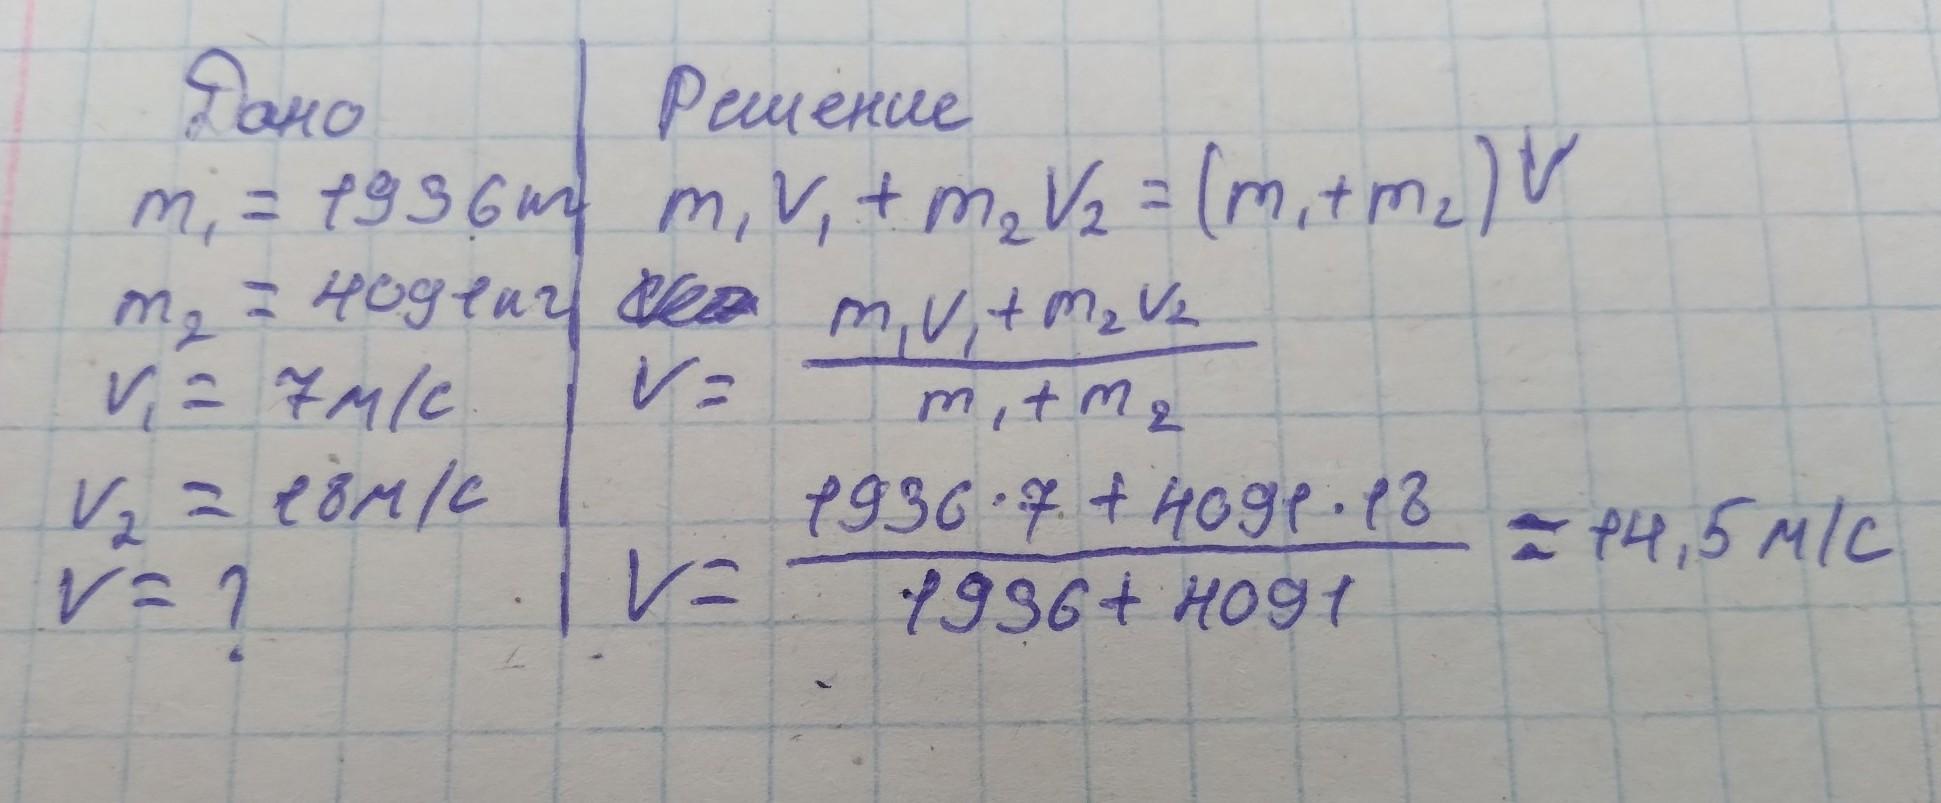 Дано
m₁ = 1936 кг
m₂ = 4091 кг
V₁ = 7 м/с
V₂ = 18 м/с
V = ?
Решение
m₁V₁ + m₂V₂ = (m₁ + m₂)V
V = (m₁V₁ + m₂V₂) / (m₁ + m₂)
V = (1936 · 7 + 4091 · 18) / (1936 + 4091) ≈ 14,5 м/с